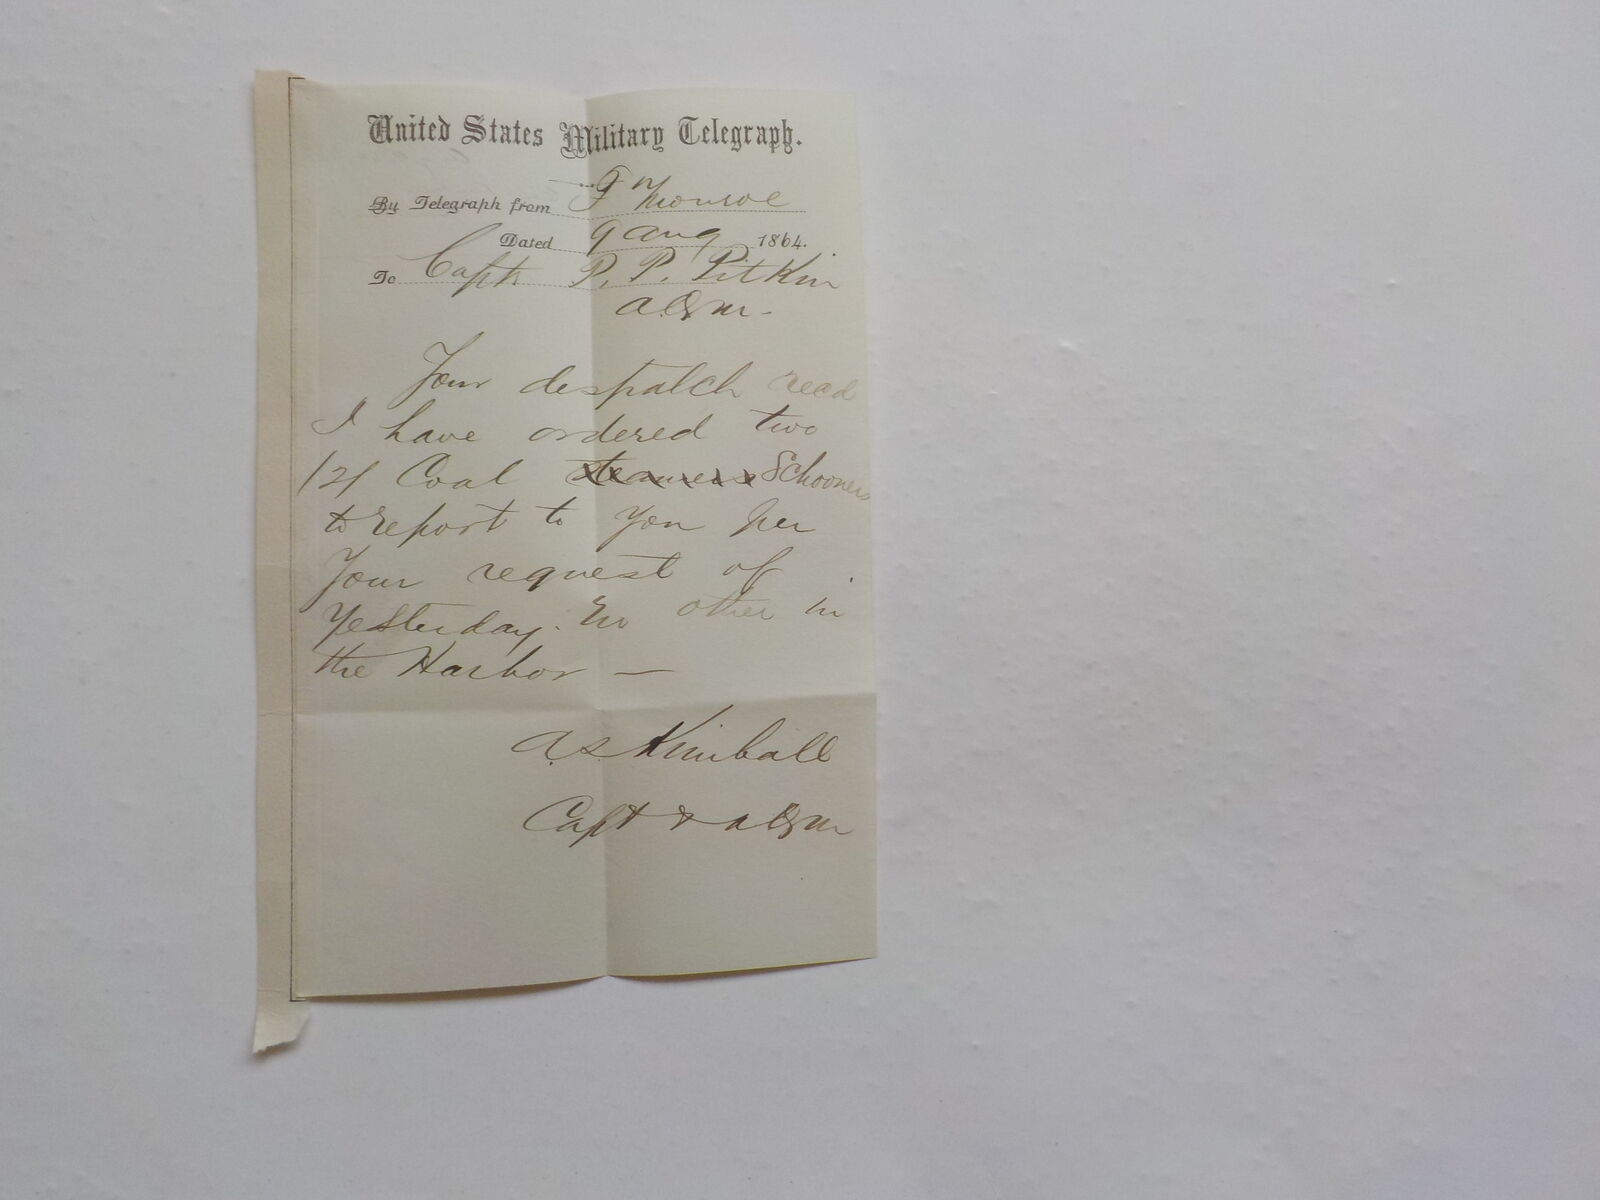 United States Military Telegraph.
By Telegraph from F Monroe
Dated 9 Aug 1864.
To Capt P. P. Pitkin
A.Q.M.
Your despatch recd
I have ordered two
/2/ Coal steamers Schooners
to report to you per
Your request of
Yesterday. No other in
the Harbor —
A.S. Kimball
Capt & AQM